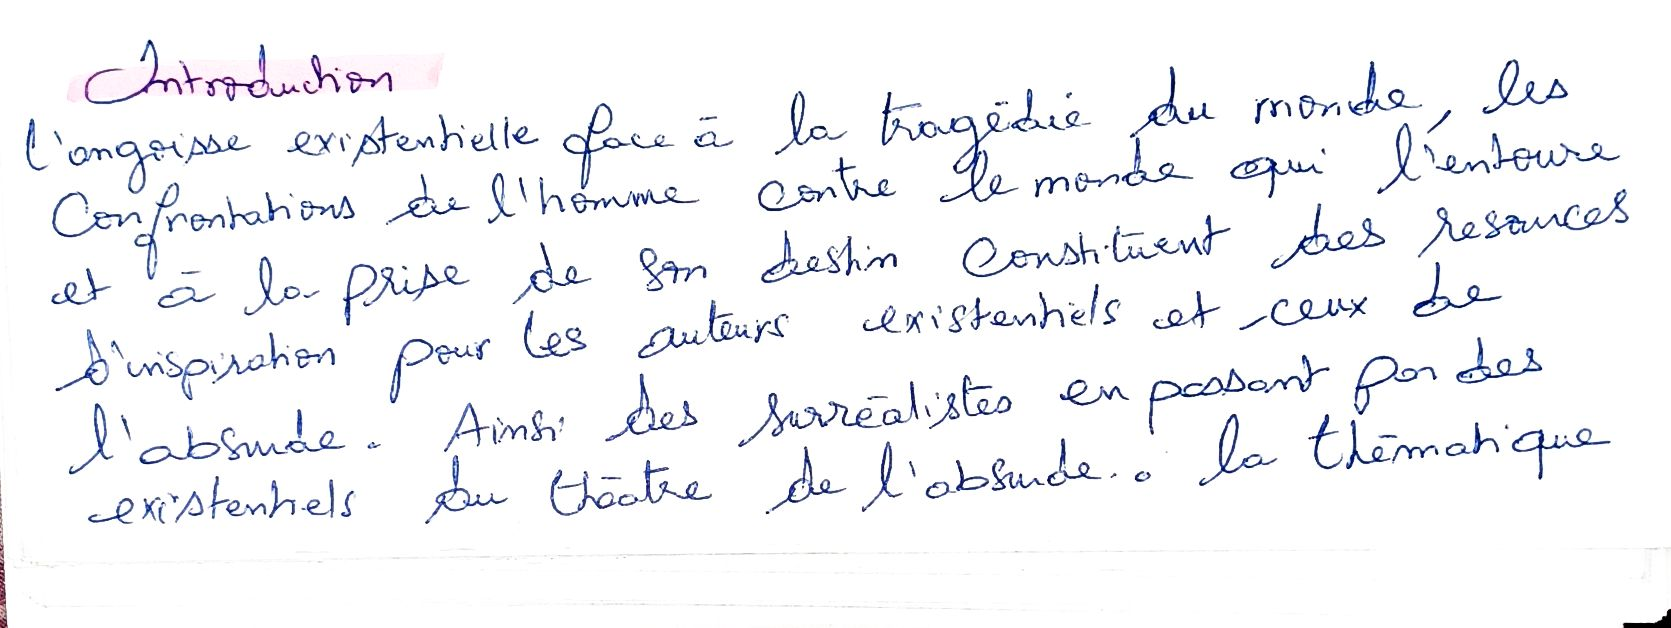 Introduction
L'angoisse existentielle face à la tragédie du monde, les
Confrontations de l'homme contre le monde qui l'entoure
et à la prise de son destin constituent des resources
d'inspiration pour les auteurs existentiels et ceux de
l'absurde. Ainsi des surréalistes en passant par des
existentiels du théatre de l'absurde.. la thématique